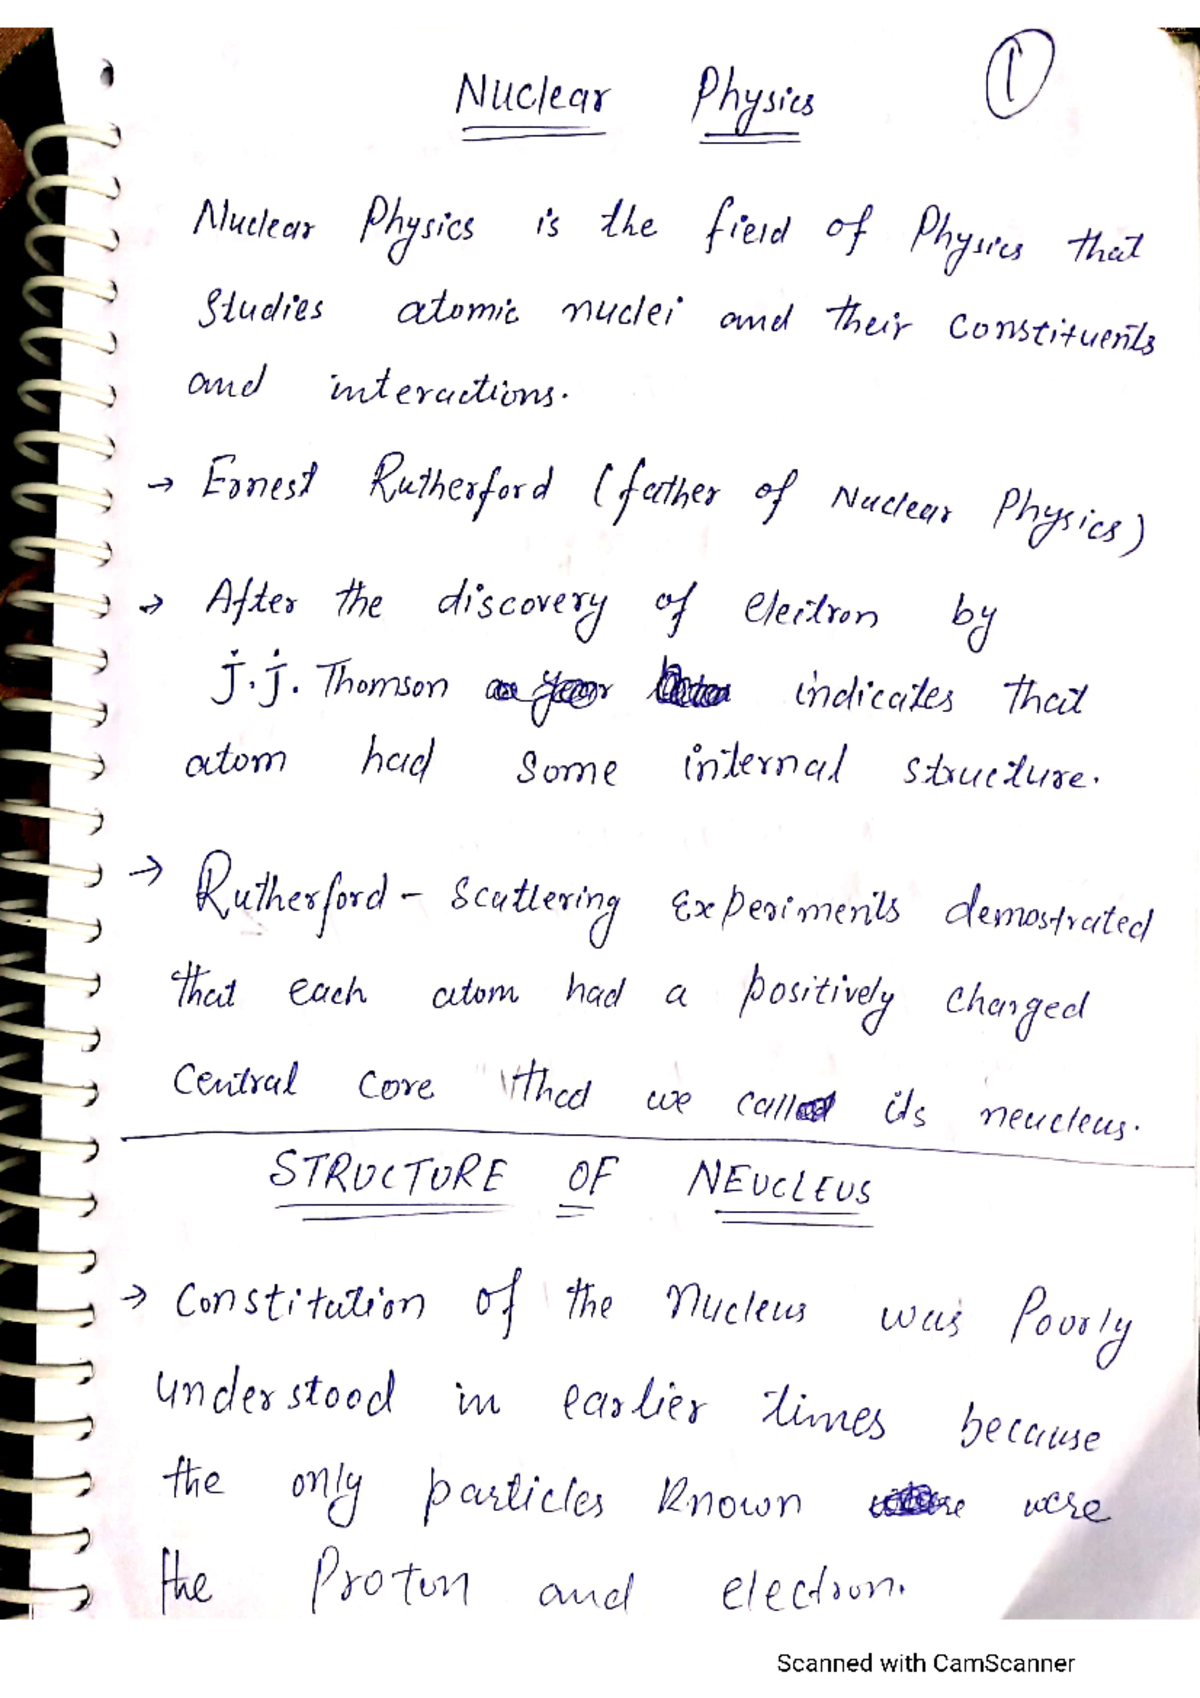 Nuclear Physics
1
Nuclear Physics is the field of Physics that
Studies atomic nuclei and their constituents
and interactions.
→ Ernest Rutherford (father of Nuclear Physics)
→ After the discovery of electron by
J.J. Thomson indicates that
atom had some internal structure.
→ Rutherford - Scattering Experiments demostrated
that each atom had a positively charged
central core "that we call its neucleus.
STRUCTURE OF NEUCLEUS
→ Constitution of the nucleus was Poorly
understood in earlier times because
the only particles known were
the Proton and electron.
Scanned with CamScanner